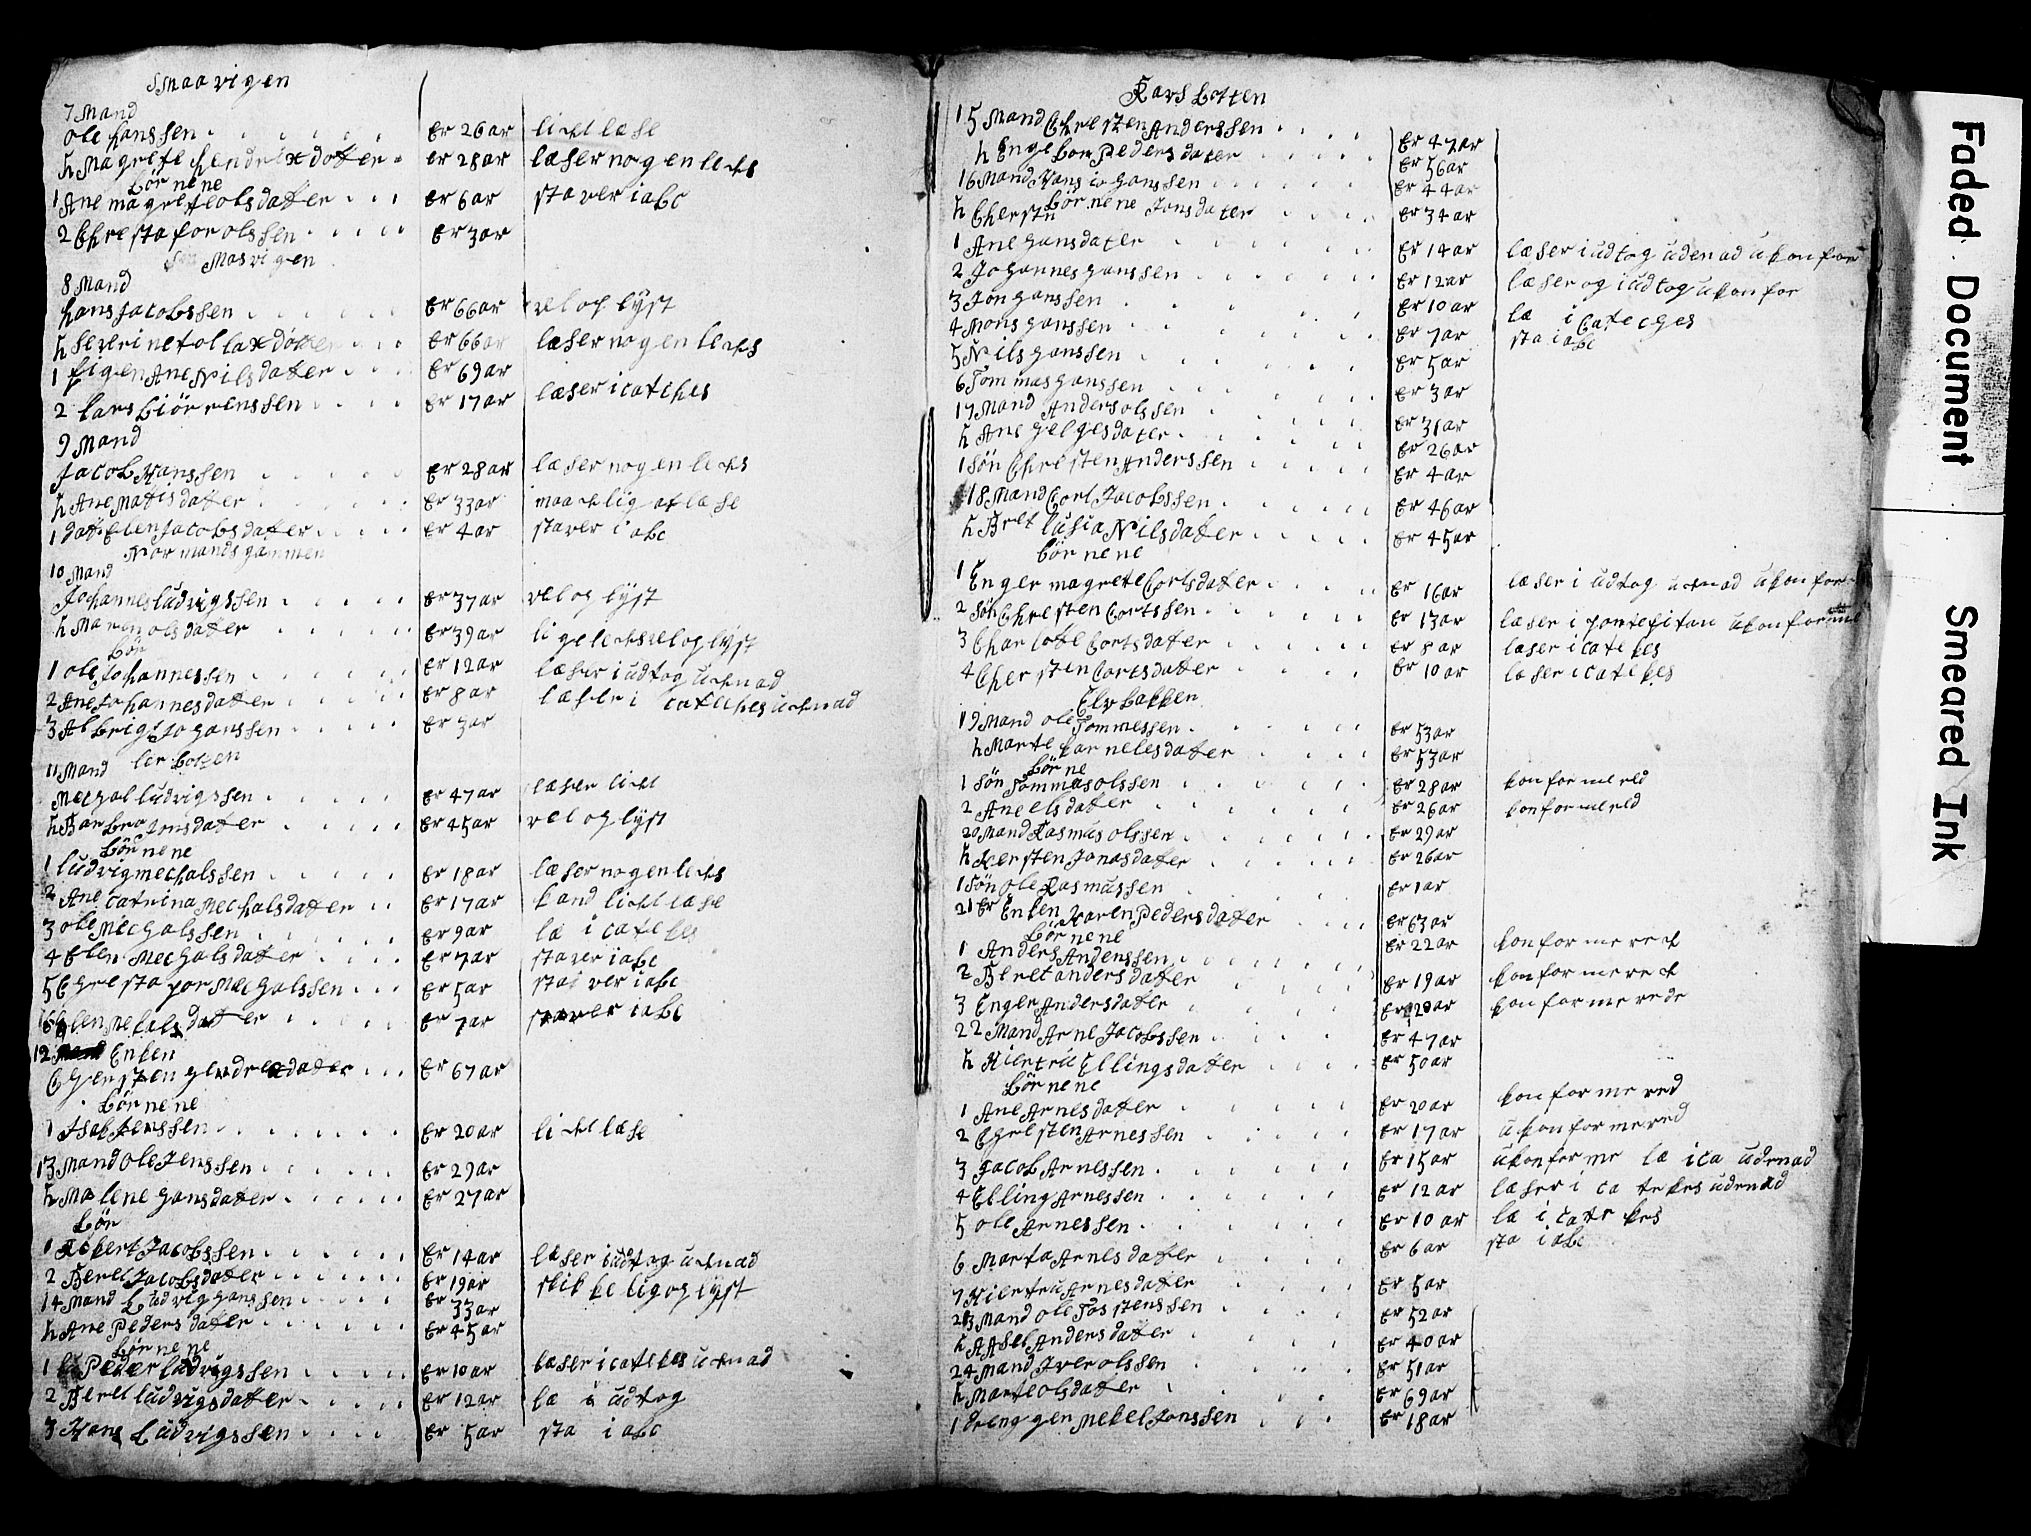 Smaavigen
7 Mand
ole hanssen Er 26 ar licht læse
h Magrete hendrixdotter er 28 ar læser nogenlechs
Börnene
1 Ane magrete olsdatter Er 6 ar staver i abc
2 Chrestafor olssen Er 3 ar
Masvigen
8 Mand
hans Jacobssen Er 66 ar vel oplyst
h Severine tollaxdötter Er 66 ar læser nogenlechs
1 pigen Ane Nilsdatter Er 69 ar
2 Lars biörnenssen Er 17 ar læser i catches
9 Mand
Jacob Hanssen Er 28 ar læser nogenlechs
h Ane Matisdatter Er 33 ar maachlig at læse
1 datt Elen Jacobsdatter Er 4 ar staver i abc
Normands gammen
10 Mand
Johannes ludvigssen Er 37 ar vel oplyst
h Maren olsdatter Er 39 ar ligelechs vel oplyst
bör
1 ole Johannessen Er 12 ar læser i udtog uchnad
2 Ane Johannesdatter Er 8 ar læser i catechesuchnad
3 Albrigt Joganssen Er 3 ar
ler botten
11 Mand
Mechal ludvigssen Er 47 ar læser licht
h Barbra Jensdatter Er 45 ar vel oplyst
Börnene
1 ludvig mechalssen Er 18 ar læser nogenlechs
2 Ane catrina Mechalsdatter Er 17 ar kand licht læse
3 ole Mechalssen Er 9 ar læ i catekes
4 Elen Mechalsdatter Er 7 ar staver i abc
5 Chrestapor Mechalssen Er 5 ar staver i abc
6 Elen Mekalsdatter Er 7 ar staver i abc
12 Enken
Chersten hendrexdatter Er 67 ar
Börnene
1 Isak Jenssen Er 20 ar licht læse
13 Mand ole Jenssen Er 29 ar
h Malene hansdatter Er 27 ar
bör
1 Eckert Jacobssen Er 14 ar læser i udtog uchnad
2 Beret Jacobsdatter Er 19 ar skikkelig oplyst
14 Mand Ludvig hanssen Er 33 ar
h Ane Pedersdatter Er 45 ar
börnene
1 Peder ludvigssen Er 10 ar læser i catekes uchnad
2 Beret ludvigsdatter Er 12 ar læ i udtog
3 Hans Ludvigssen Er 5 ar sta i abc
Kars botten
15 Mand Chresten Anderssen Er 47 ar
h Engebor Pedersdater Er 56 ar
16 Mand Hans Johanssen Er 44 ar
h Chersten Jonsdater Er 34 ar
Börnene
1 Ane hansdater Er 14 ar læser i udtog udenad ukonfor
2 Johannes hanssen Er 12 ar læser og i udtog ukonfor
3 Jon hanssen Er 10 ar læ i Catecges
4 Mons hanssen Er 7 ar sta i abc
5 Nils hanssen Er 5 ar
6 Tommas hanssen Er 3 ar
17 Mand Anders olssen Er 31 ar
h Ane helgesdater Er 26 ar
1 Sön Chresten Anderssen Er 4 ar
18 Mand Cort Jacobssen Er 46 ar
h Bret lusia Nilsdatter Er 45 ar
börnene
1 Enger magrete Cortsdatter Er 16 ar læser i udtog uchnad ukonfor
2 Sön Chresten Cortssen Er 13 ar læser i pontepitan ukonforme
3 Charlote Cortsdatter Er 8 ar læser i catekes
4 Chersten Cortsdatter Er 10 ar læser i catekes
Elvbakken
19 Mand ole Tommessen Er 53 ar
h Marte karnelesdatter Er 53 ar
börne
1 Sön Tommas olssen Er 28 ar konformereld
2 Ane elsdatter Er 26 ar konformereld
20 Mand Rasmus olssen Er 29 ar
h Kersten Jonasdatter Er 26 ar
1 Sön ole Rasmussen Er 1 ar
21 Er Enken Karen Pedersdatter Er 63 ar
Börnene
1 Anders Anderssen Er 22 ar konformeret
2 Beret andersdatter Er 19 ar konformeret
3 Enger Andersdatter Er 20 ar konformerede
22 Mand Arne Jacobssen Er 47 ar
h Hiertru Ellingsdatter Er 50 ar
Börnene
1 Ane Arnesdatter Er 20 ar konformered
2 Chresten Arnessen Er 17 ar ukonformered
3 Jacob Arnessen Er 15 ar ukonforme læ i ca udenad
4 Elling Arnessen Er 12 ar læser i catekes udenad
5 ole Arnessen Er 10 ar læ i catekes
6 Marta Arnesdatter Er 6 ar sta i abc
7 Hiertru Arnesdatter Er 5 ar
23 Mand ole Tosstenssen Er 52 ar
h Asel Andersdatter Er 40 ar
24 Mand Iver olssen Er 51 ar
h Marte olsdatter Er 69 ar
1 Drenggen Mekel Jonssen Er 18 ar
Faded Document Smeared Ink